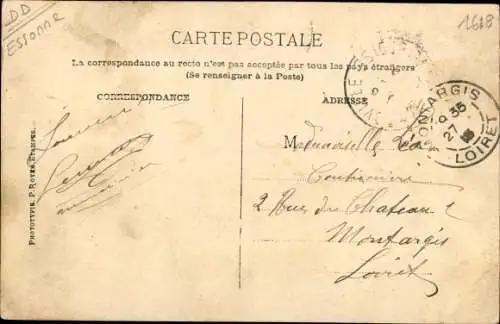 DD
ESSONNE
1618
CARTE POSTALE
La correspondance au recto n'est pas acceptée par tous les pays étrangers
(Se renseigner à la Poste)
CORRESPONDANCE
ADRESSE
MONTARGIS
9 35
27
LOIRET
Mademoiselle
Couturière
2 Rue du Chateau
Montargis
Loiret
Souvenir
PHOTOTYPIE P. ROYER, ETAMPES.